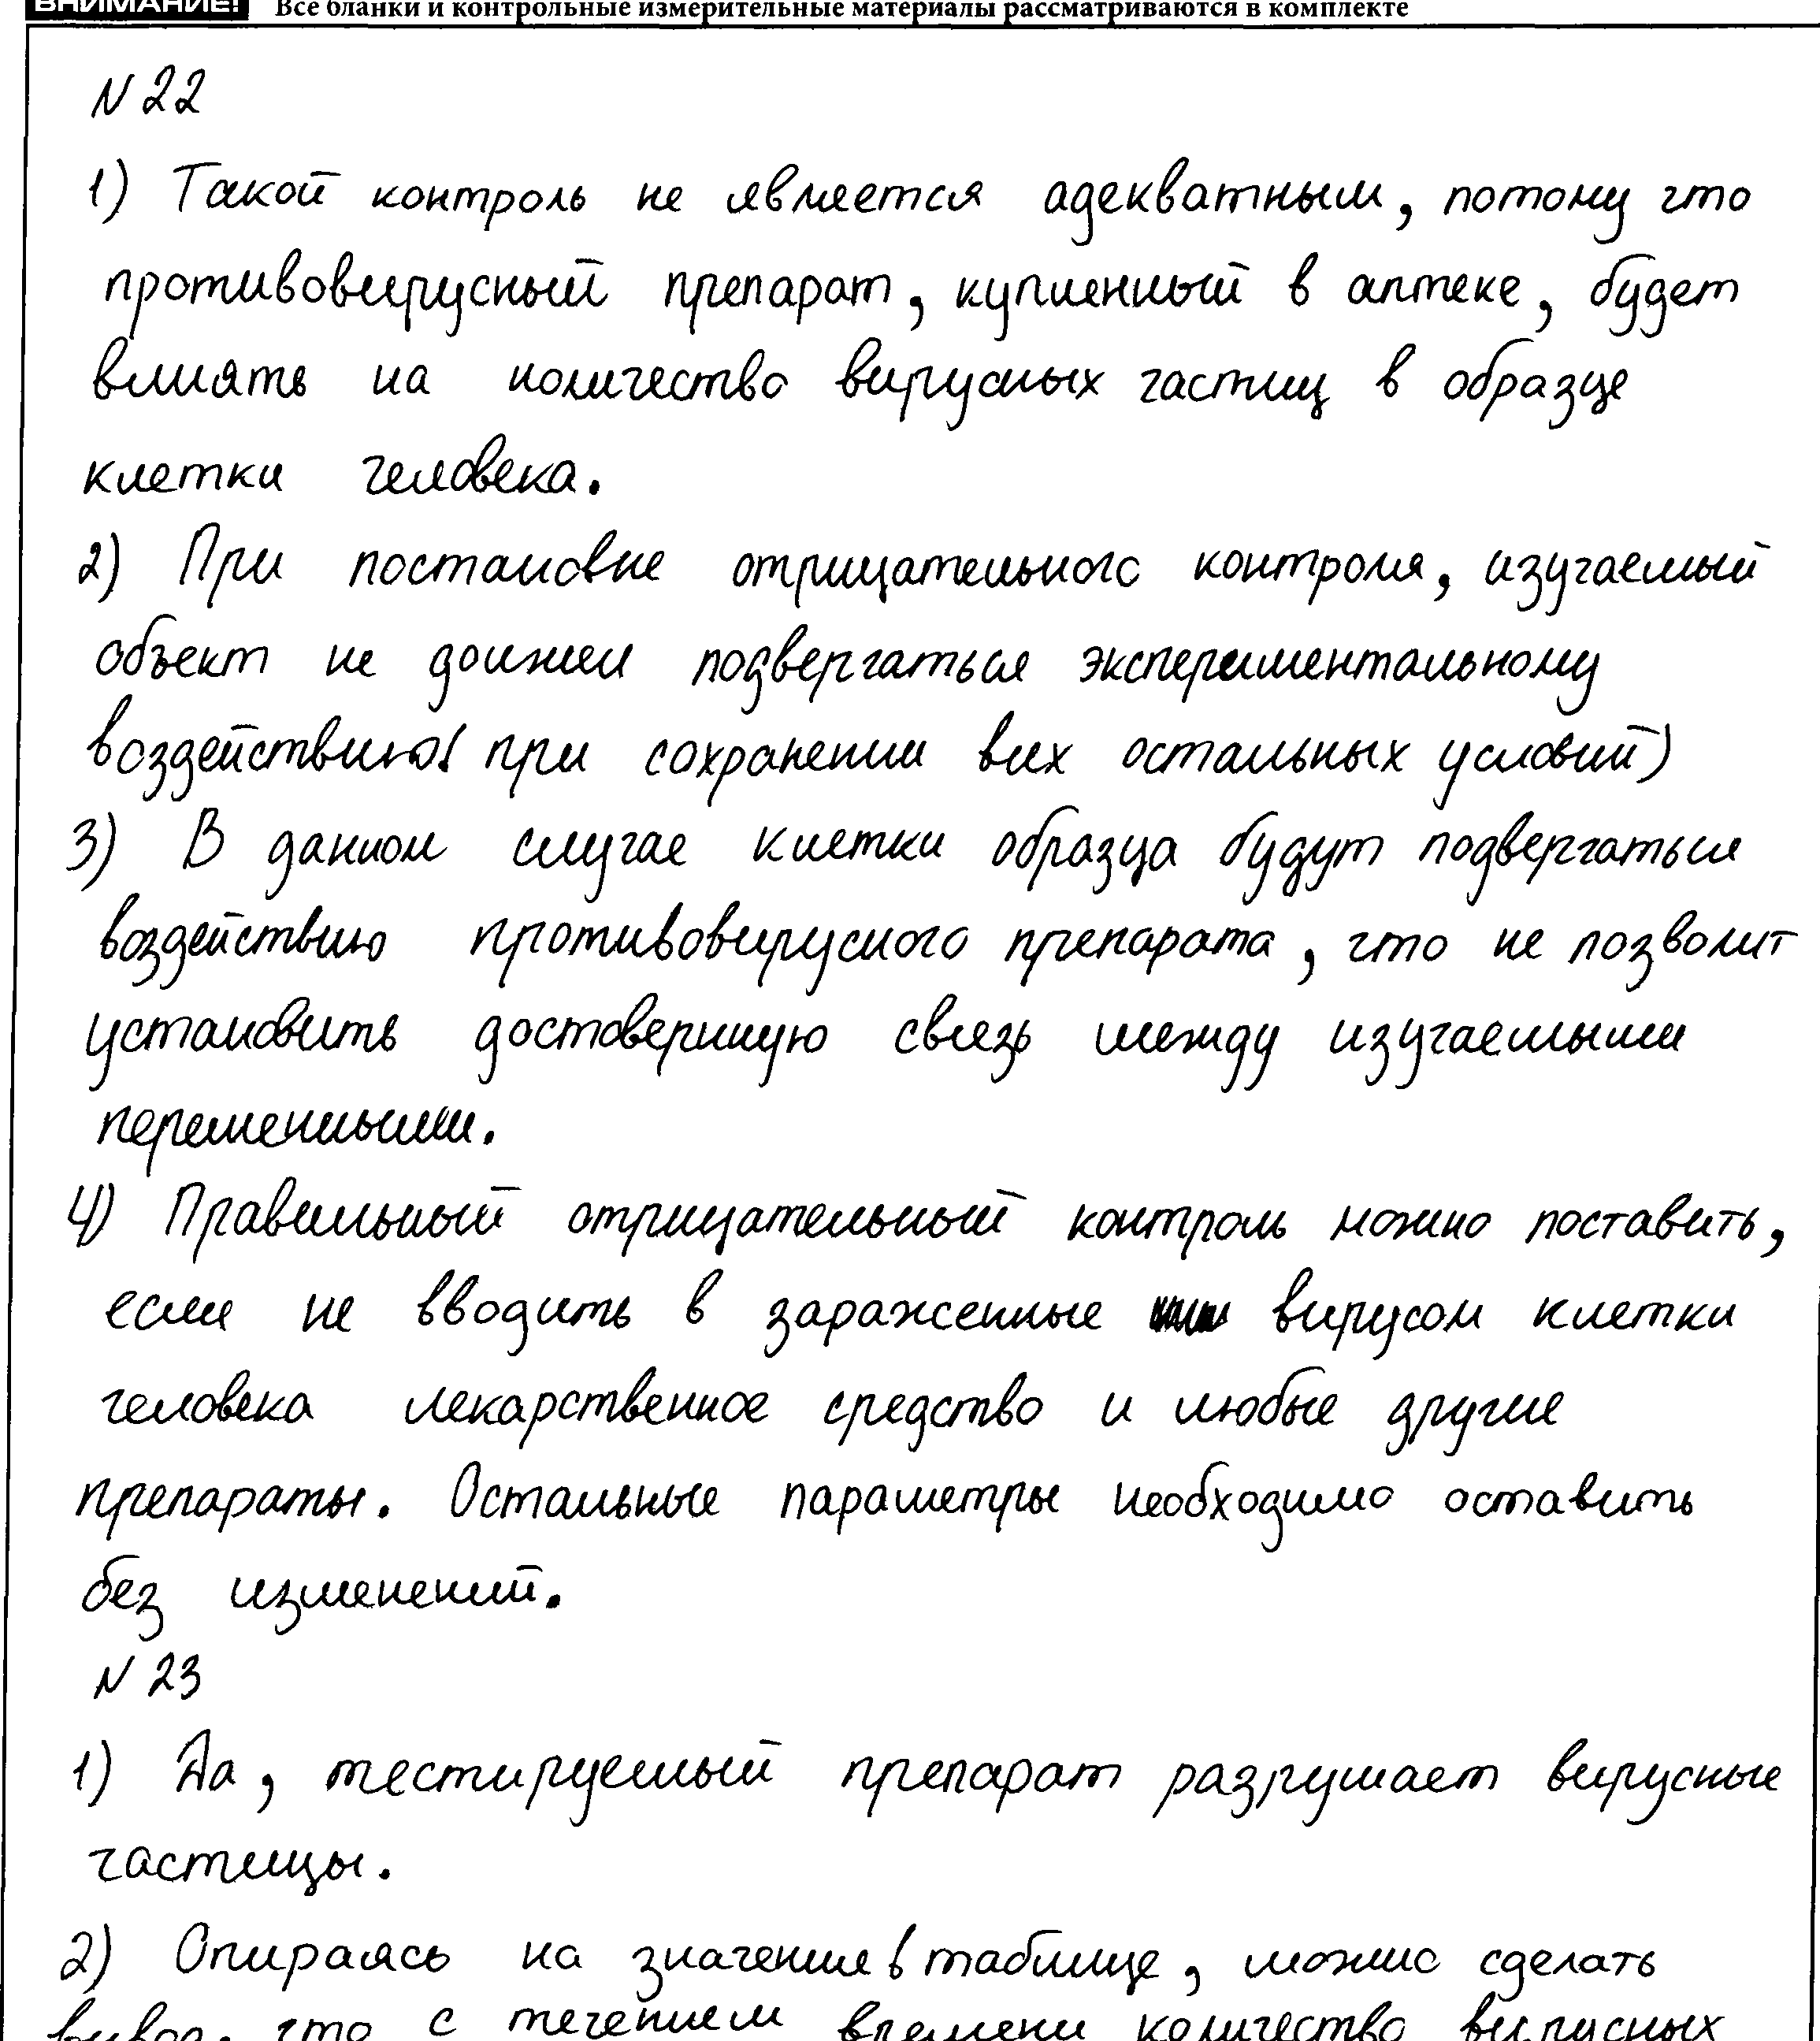 ВНИМАНИЕ! Все бланки и контрольные измерительные материалы рассматриваются в комплекте
N 22
1) Такой контроль не является адекватным, потому что
противовирусный препарат, купленный в аптеке, будет
влиять на количество вирусных частиц в образце
клетки человека.
2) При постановке отрицательного контроля, изучаемый
объект не должен подвергаться экспериментальному
воздействию( при сохранении всех остальных условий)
3) В данном случае клетки образца будут подвергаться
воздействию противовирусного препарата, что не позволит
установить достоверную связь между изучаемыми
переменными.
4) Правильный отрицательный контроль можно поставить,
если не вводить в зараженные вирусом клетки
человека лекарственное средство и любые другие
препараты. Остальные параметры необходимо оставить
без изменений.
N 23
1) Да, тестируемый препарат разрушает вирусные
частицы.
2) Опираясь на значение в таблице, можно сделать
вывод, что с течением времени количество вирусных